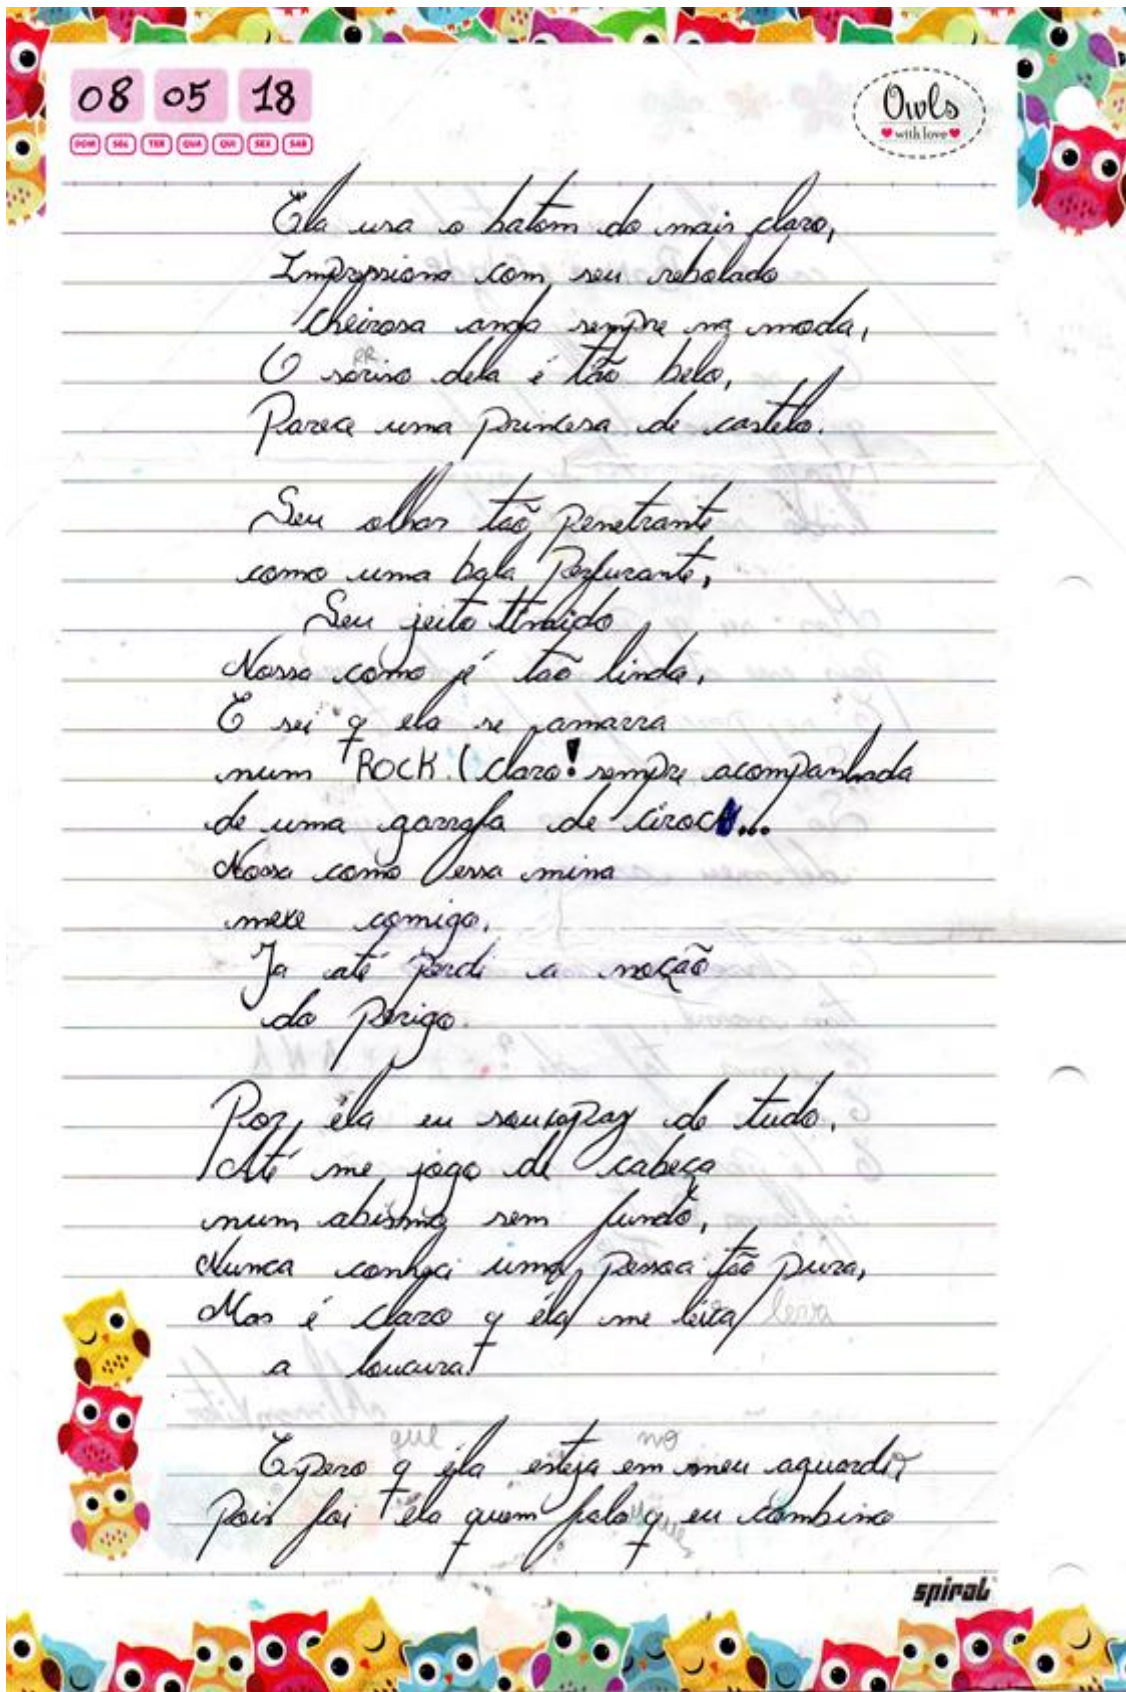 08 05 18
DOM SEG TER QUA QUI SEX SAB
Owls
with love
Ela usa o batom do mais claro,
Impressiona com seu rebolado
cheirosa anda sempre na moda,
RR
O soriso dela é tão belo,
Parece uma princesa de castelo.
Seu olhar tão penetrante
como uma bala perfurante,
Seu jeito tímido
Nossa como é tão linda,
E sei q ela se amarra
num ROCK. (claro! sempre acompanhada
de uma garrafa de ciroc...
Nossa como essa mina
mexe comigo,
Ja até perdi a noção
do perigo.
Por ela eu sou capaz de tudo,
Até me jogo de cabeça
num abismo sem fundo,
Nunca conheci uma pessoa tão pura,
Mas é claro q ela me leva leva
a loucura!
que no
Espero q ela esteja em meu aguardo
Pois foi ela quem falo q eu combino
spiral